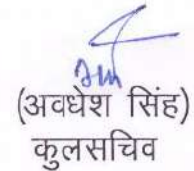 (अवधेश सिंह)
कुलसचिव